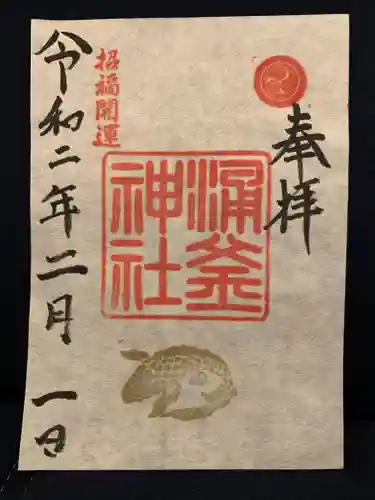 奉拝
涌釜
神社
招福開運
令和二年二月一日